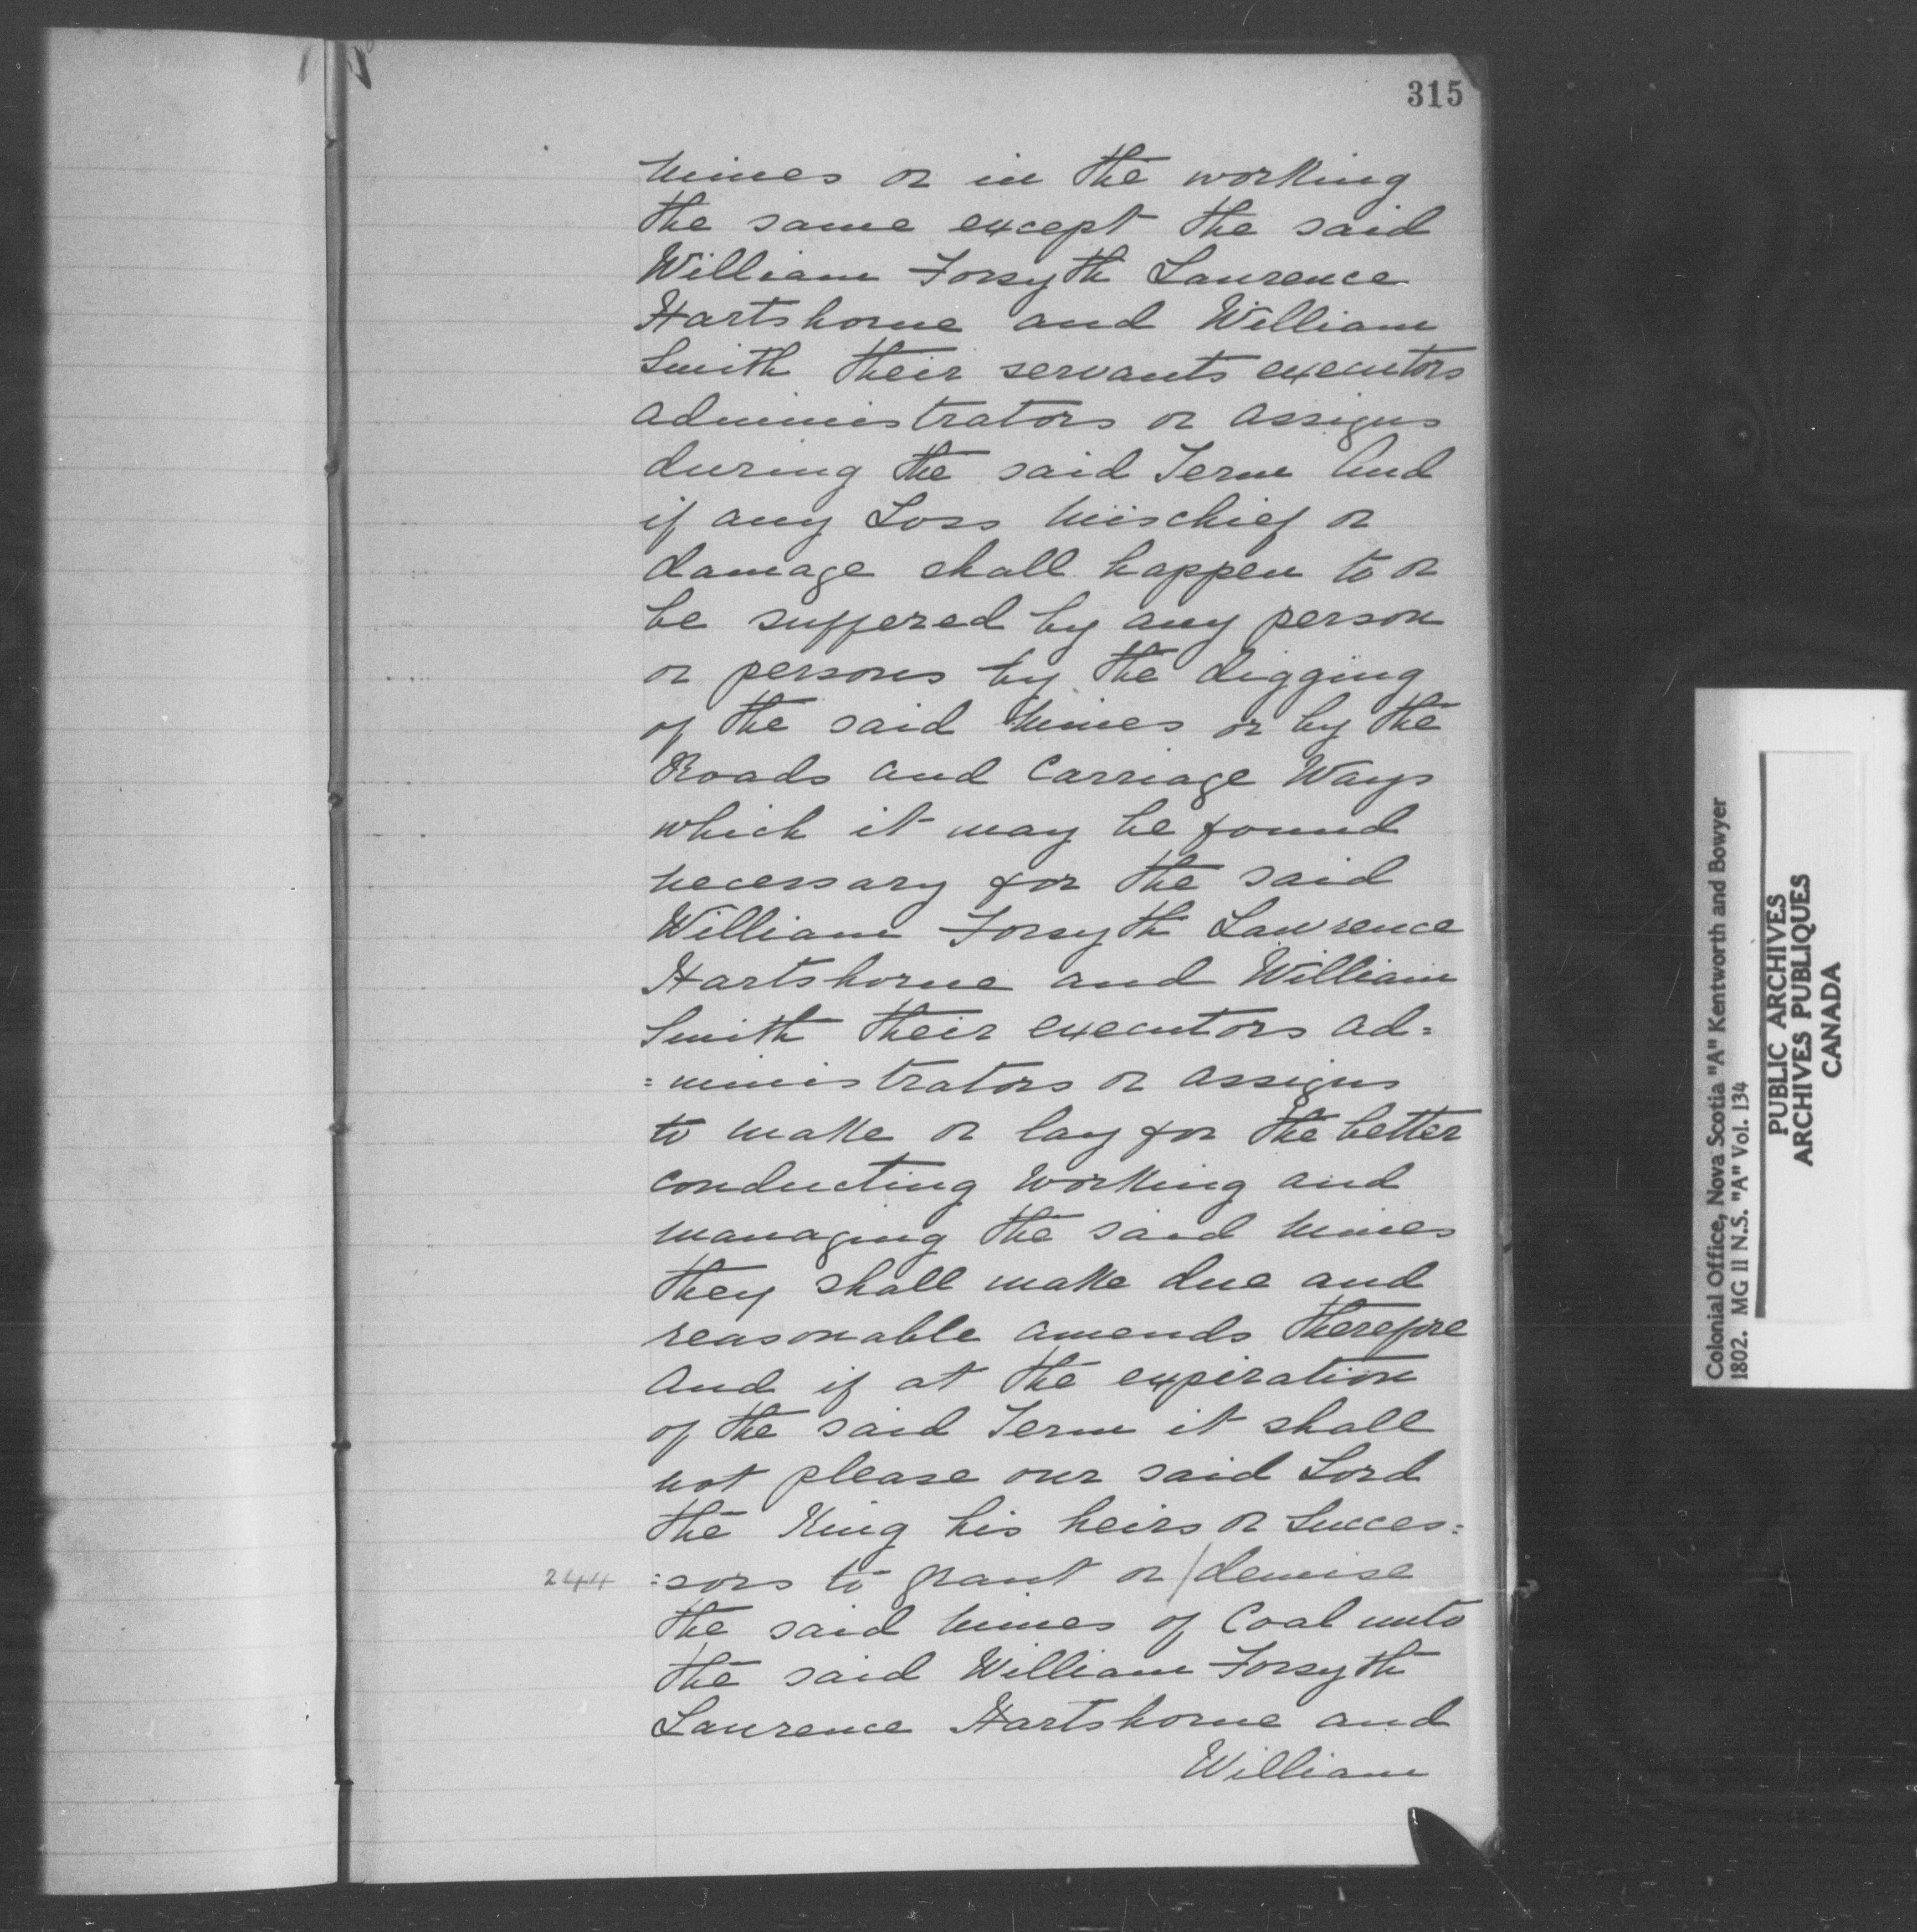 315
Mines or in the working
the same except the said
William Forsyth Laurence
Hartshorne and William
Smith their servants executors
administrators or assigns
during the said Term And
if any Loss Mischief or
damage shall happen to or
be suffered by any person
or persons by the digging
of the said Mines or by the
Roads and Carriage Ways
which it may be found
necessary for the said
William Forsyth Lawrence
Hartshorne and William
Smith their executors ad=
=ministrators or assigns
to make or lay for the better
conducting working and
managing the said Mines
they shall make due and
reasonable amends therefore
And if at the expiration
of the said Term it shall
not please our said Lord
the King his heirs or Succes=
244 =sors to grant or / demise
the said Mines of Coal unto
the said William Forsyth
Laurence Hartshorne and
William
Colonial Office, Nova Scotia "A" Kentworth and Bowyer
1802. MG 11 N.S. "A" Vol. 134
PUBLIC ARCHIVES
ARCHIVES PUBLIQUES
CANADA